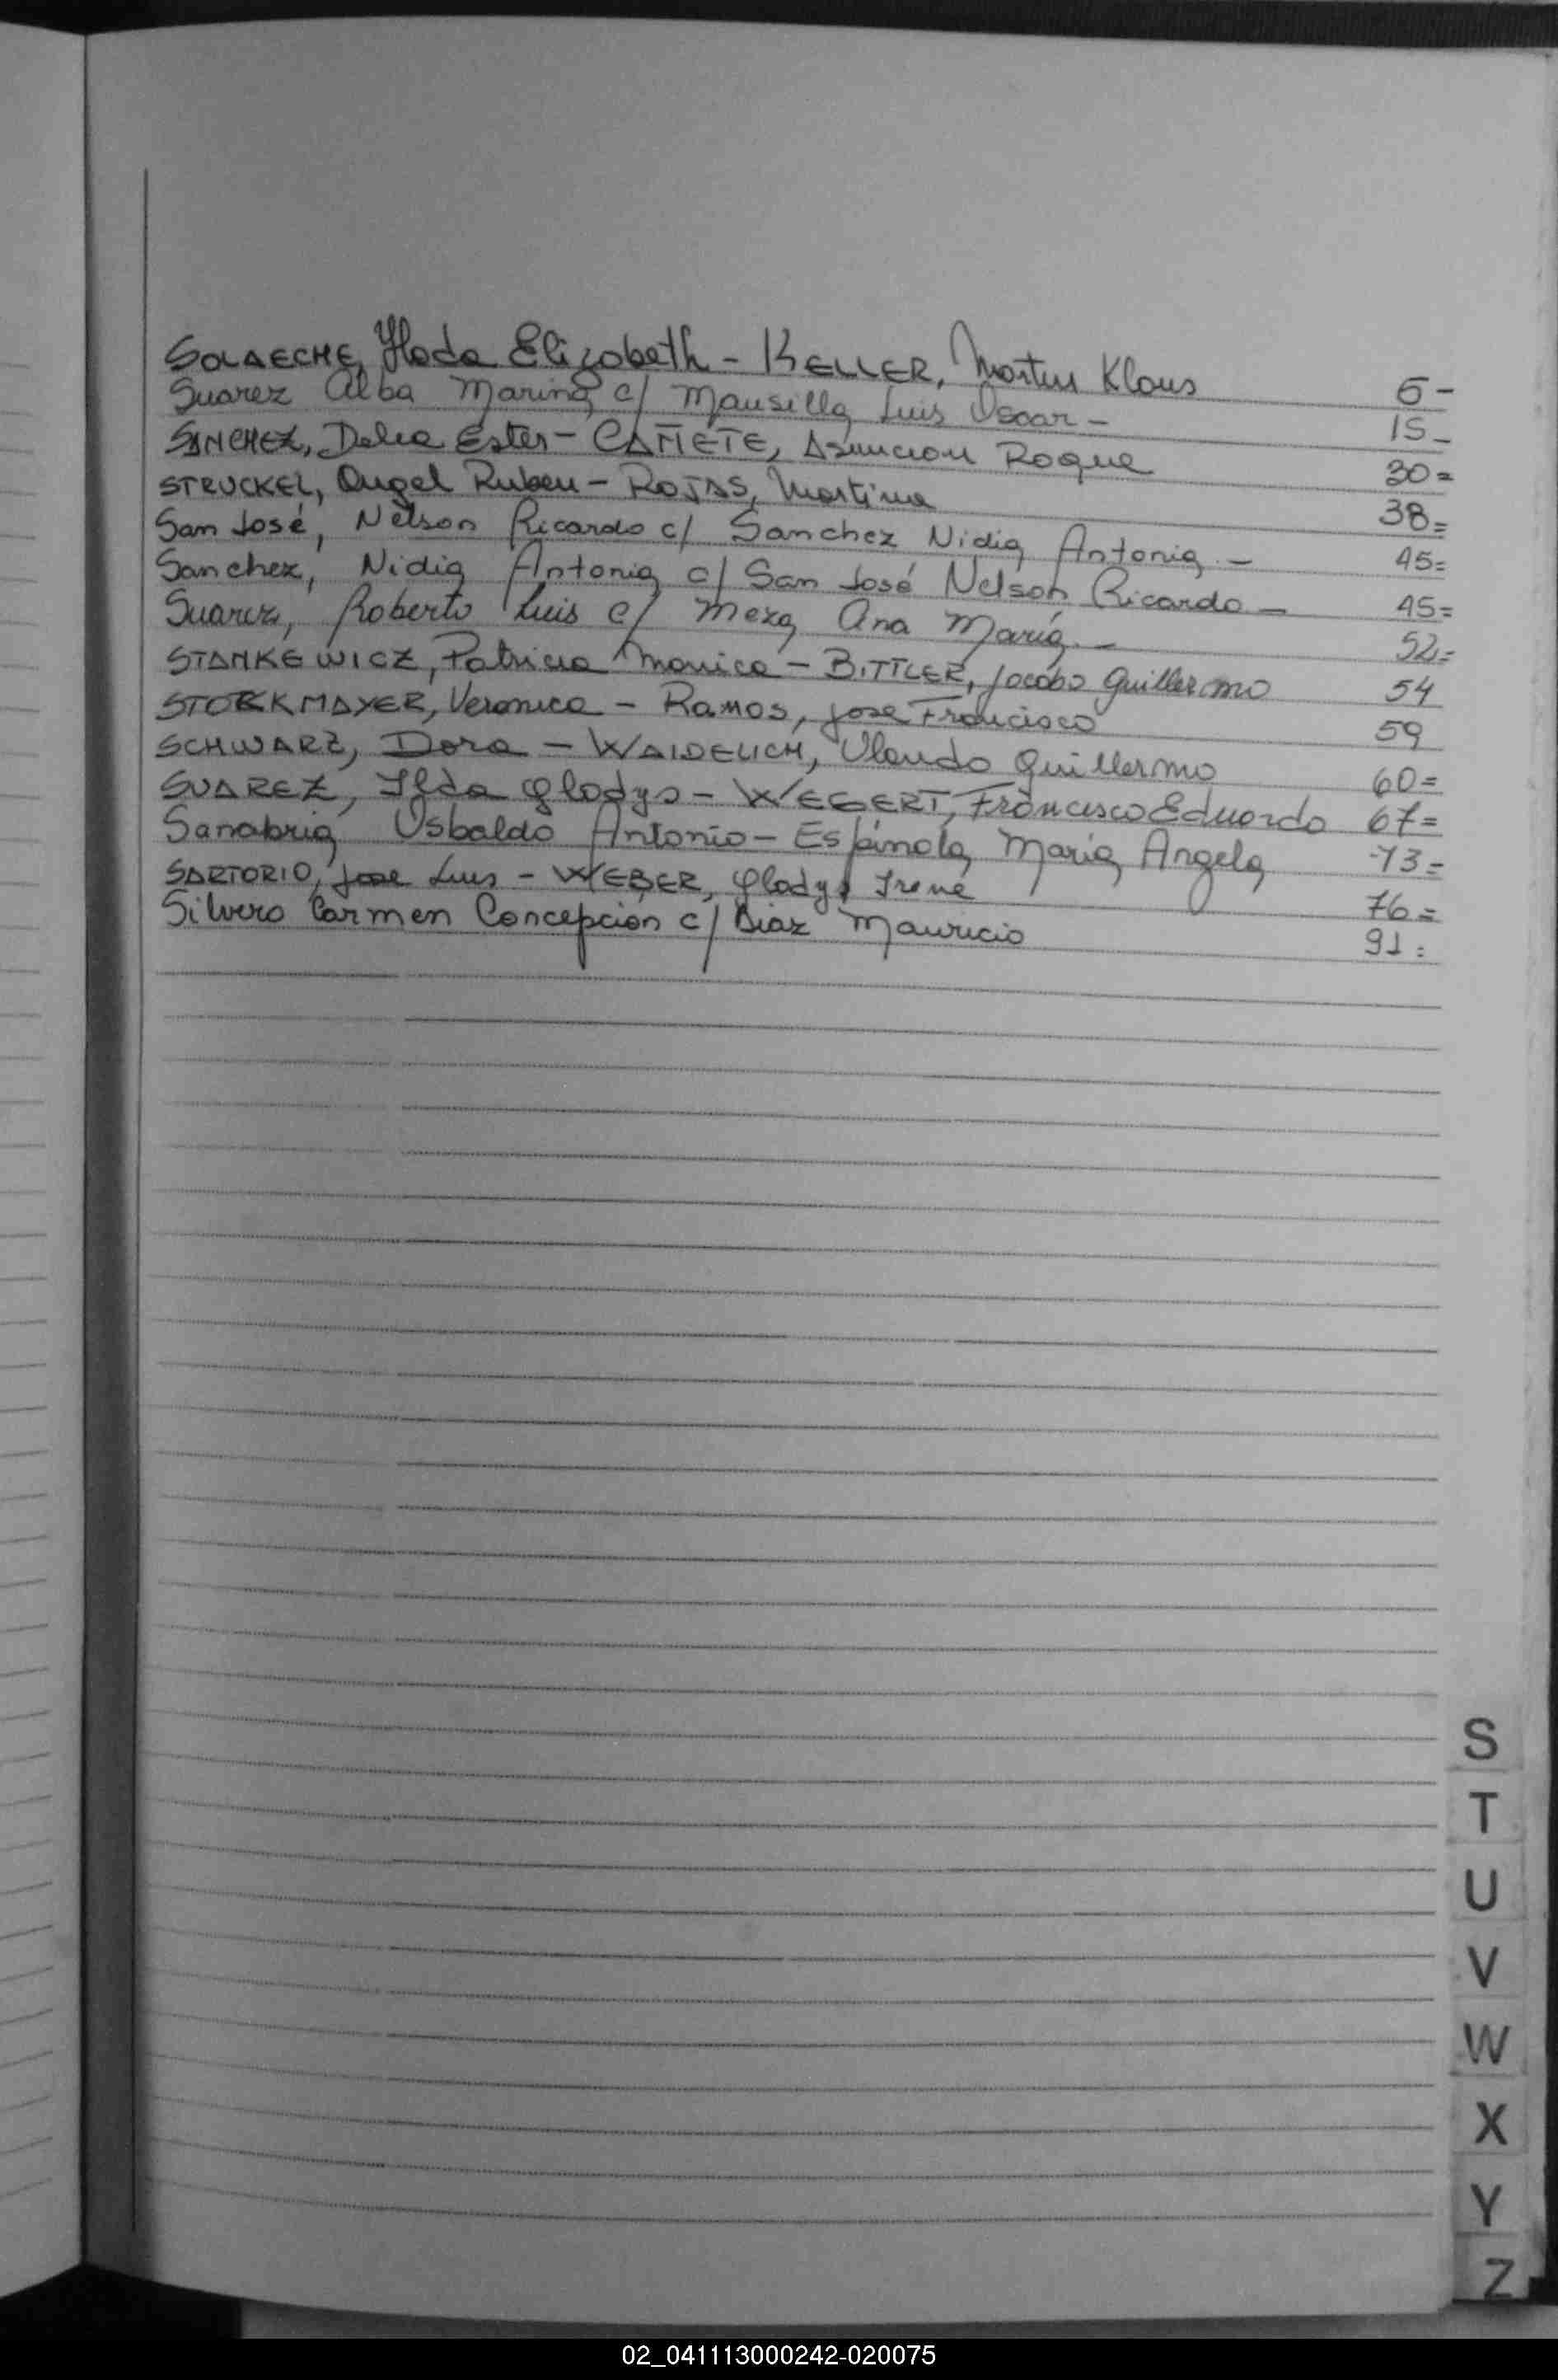 SOLAECHE, Ilda Elizabeth - KELLER, Martin Klaus 6-
Suarez Alba Marina c/ Mansilla, Luis Oscar - 15-
SANCHEZ, Delia Ester - CAÑETE, Asuncion Roque 30=
STRUCKEL, Angel Ruben - ROJAS, Martina 38=
San José, Nelson Ricardo c/ Sanchez Nidia Antonia - 45=
Sanchez, Nidia Antonia c/ San José Nelson Ricardo - 45=
Suarez, Roberto Luis c/ Meza, Ana María - 52=
STANKEWICZ, Patricia Monica - BITTLER, Jacobo Guillermo 54
STORKMAYER, Veronica - Ramos, Jose Francisco 59
SCHWARZ, Dora - WAIDELICH, Olando Guillermo 60=
SUAREZ, Ilda Gladys - WEGERT, Francisco Eduardo 67=
Sanabria Osbaldo Antonio - Espínola, Maria Angela 73=
SARTORIO, Jose Luis - WEBER, Gladys Irene 76=
Silvero Carmen Concepción c/ Diaz Mauricio 91=
S
T
U
V
W
X
Y
Z
02_041113000242-020075